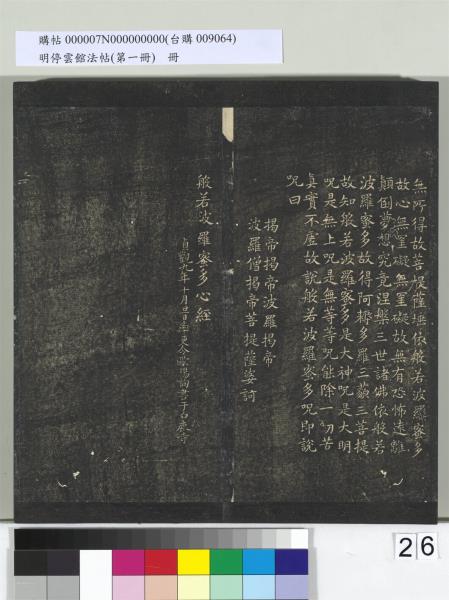 購帖 000007N000000000(台購 009064)
明停雲館法帖(第一冊) 冊
無所得故菩提薩埵依般若波羅蜜多
故心無罣礙無罣礙故無有恐怖遠離
顛倒夢想究竟涅槃三世諸佛依般若
波羅蜜多故得阿耨多羅三藐三菩提
故知般若波羅蜜多是大神咒是大明
咒是無上咒是無等等咒能除一切苦
真實不虛故說般若波羅蜜多咒即說
咒曰
揭帝揭帝波羅揭帝
波羅僧揭帝菩提薩婆訶
般若波羅蜜多心經
貞觀九年十月旦日率更令歐陽詢書于白鹿寺
26